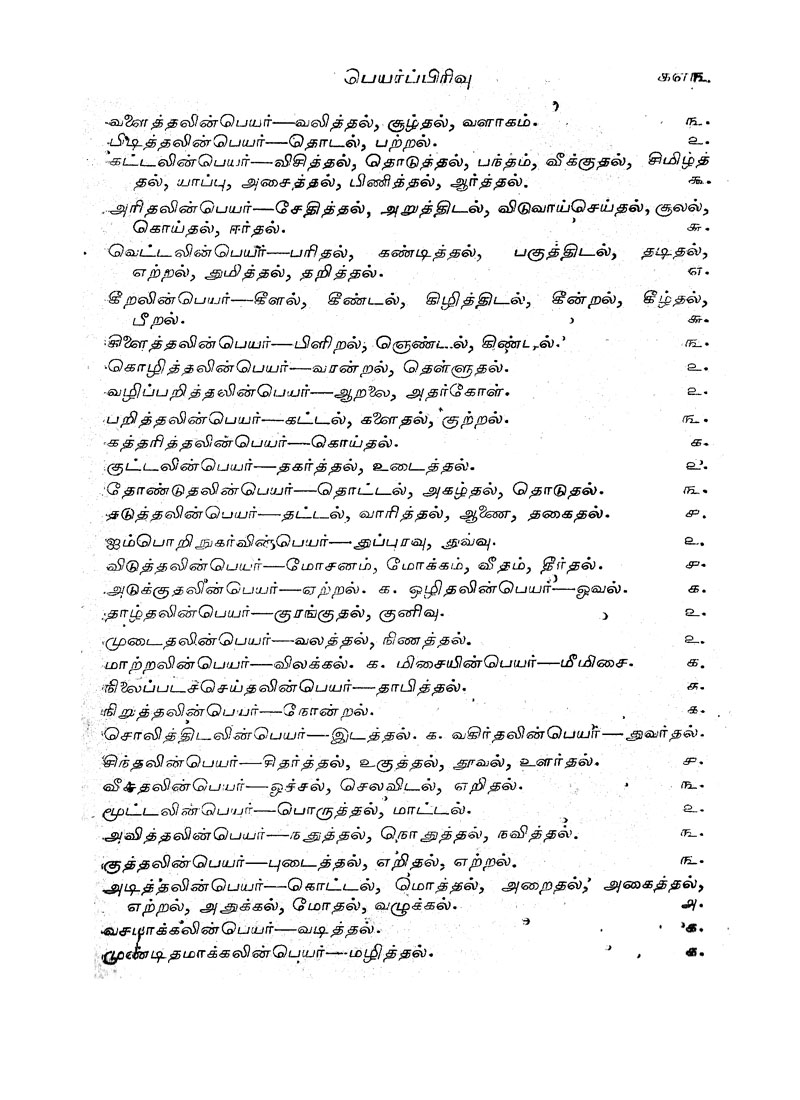 பெயர்ப்பிரிவு
வளைத்தலின்பெயர்—வலித்தல், சூழ்தல், வளாகம். ௩.
பிடித்தலின்பெயர்—தொடல், பற்றல். ௨.
கட்டலின்பெயர்—விசித்தல், தொடுத்தல், பந்தம், வீக்குதல், சிமிழ்த்
தல், யாப்பு, அசைத்தல், பிணித்தல், ஆர்த்தல். ௯.
அரிதலின்பெயர்—சேதித்தல், அறுத்திடல், விடுவாய்செய்தல், சூலல்,
கொய்தல், ஈர்தல். ௬.
வெட்டலின்பெயர்—பரிதல், கண்டித்தல், பகுத்திடல், தடிதல்,
எற்றல், துமித்தல், தறித்தல். ௭.
கீறலின்பெயர்—கீளல், கீண்டல், கிழித்திடல், கீன்றல், கீழ்தல்,
பீறல். ௬.
கிளைத்தலின்பெயர்—பிளிறல், ஞெண்டல், கிண்டல். ௩.
கொழித்தலின்பெயர்—வரன்றல், தெள்ளுதல். ௨.
வழிப்பறித்தலின்பெயர்—ஆறலை, அதர்கோள். ௨.
பறித்தலின்பெயர்—கட்டல், களைதல், குற்றல். ௩.
கத்தரித்தலின்பெயர்—கொய்தல். ௧.
குட்டலின்பெயர்—தகர்த்தல், உடைத்தல். ௨.
தோண்டுதலின்பெயர்—தொட்டல், அகழ்தல், தொடுதல். ௩.
தடுத்தலின்பெயர்—தட்டல், வாரித்தல், ஆணை, தகைதல். ௪.
ஐம்பொறிநுகர்வின்பெயர்—துப்புரவு, துவ்வு. ௨.
விடுத்தலின்பெயர்—மோசனம், மோக்கம், வீதம், தீர்தல். ௪.
அடுக்குதலின்பெயர்—ஏற்றல். ௧. ஒழிதலின்பெயர்—ஓவல். ௧.
தாழ்தலின்பெயர்—குரங்குதல், குனிவு. ௨.
முடைதலின்பெயர்—வலத்தல், நிணத்தல். ௨.
மாற்றலின்பெயர்—விலக்கல். ௧. மிசையின்பெயர்—மீமிசை. ௧.
நிலைப்படச்செய்தலின்பெயர்—தாபித்தல். ௧.
நிறுத்தலின்பெயர்—நோன்றல். ௧.
சொலித்திடலின்பெயர்—இடத்தல். ௧. வகிர்தலின்பெயர்—துவர்தல்.
சிந்தலின்பெயர்—சிதர்த்தல், உகுத்தல், தூவல், உளர்தல். ௪.
வீசுதலின்பெயர்—ஓச்சல், செலவிடல், எறிதல். ௩.
மூட்டலின்பெயர்—பொருத்தல், மாட்டல். ௨.
அவித்தலின்பெயர்—நதுத்தல், நொதுத்தல், நவித்தல். ௩.
குத்தலின்பெயர்—புடைத்தல், எறிதல், எற்றல். ௩.
அடித்தலின்பெயர்—கொட்டல், மொத்தல், அறைதல், அகைத்தல்,
எற்றல், அதுக்கல், மோதல், வழுக்கல். ௮.
வசமாக்கலின்பெயர்—வடித்தல். ௧.
முண்டிதமாக்கலின்பெயர்—மழித்தல். ௧.